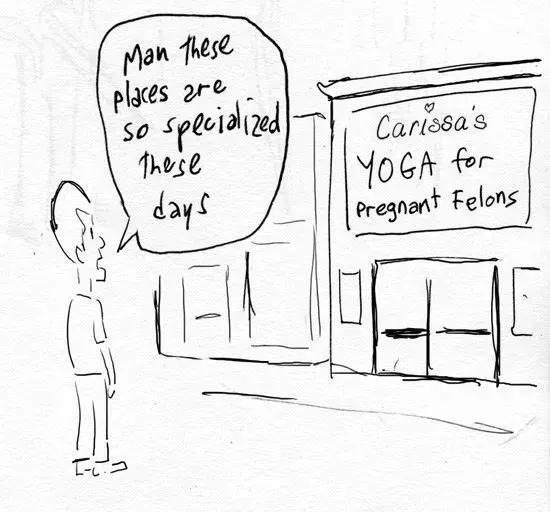 Man these
places are
so specialized
these
days
Carissa's
YOGA for
Pregnant Felons